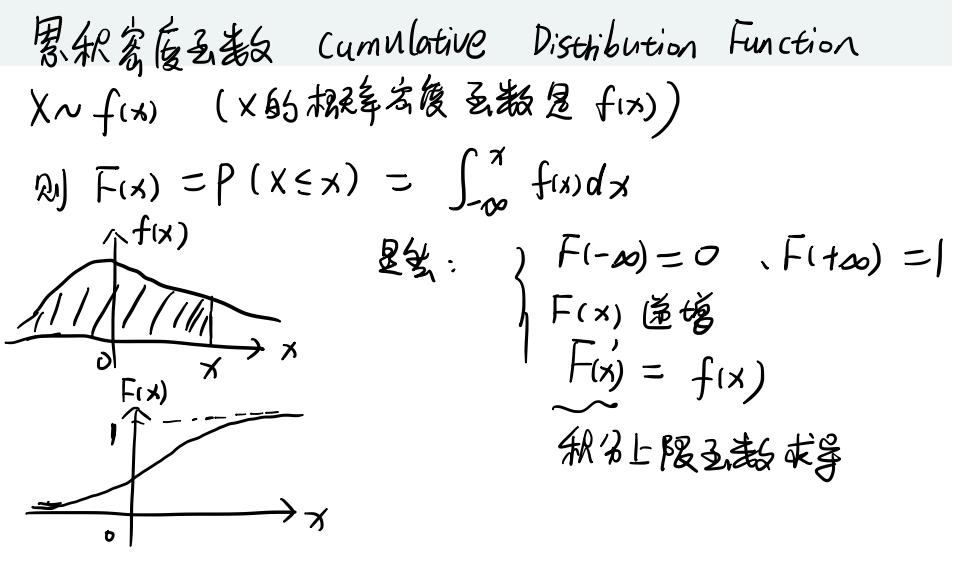 累积密度函数 Cumulative Distribution Function
X~f(x) (X的概率密度函数是 f(x))
则 F(x) = P(X≤x) = ∫_{-∞}^{x} f(x)dx
f(x)
0 x x
显然: { F(-∞)=0、F(+∞)=1
F(x) 递增
F(x)' = f(x)
积分上限函数求导
F(x)
1
0 x